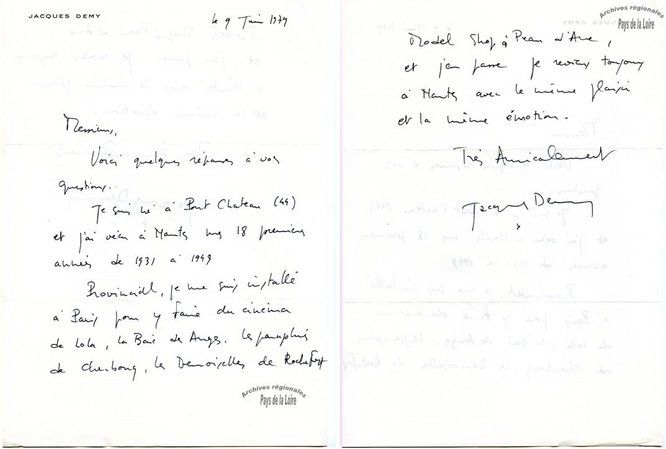 JACQUES DEMY
le 9 Juin 1979
Messieurs,
Voici quelques réponses à vos
questions.
Je suis né à Pont Chateau (44)
et j'ai vécu à Nantes mes 18 premières
années de 1931 à 1949
Provincial, je me suis installé
à Paris pour y faire du cinéma
de Lola, la Baie des Anges. les parapluies
de Cherbourg, les Demoiselles de Rochefort
Archives régionales
Pays de la Loire
Archives régionales
Pays de la Loire
Model Shop à Peau d'Ane,
et j'en passe je reviens toujours
à Nantes avec le même plaisir
et la même émotion.
Très Amicalement
Jacques Demy